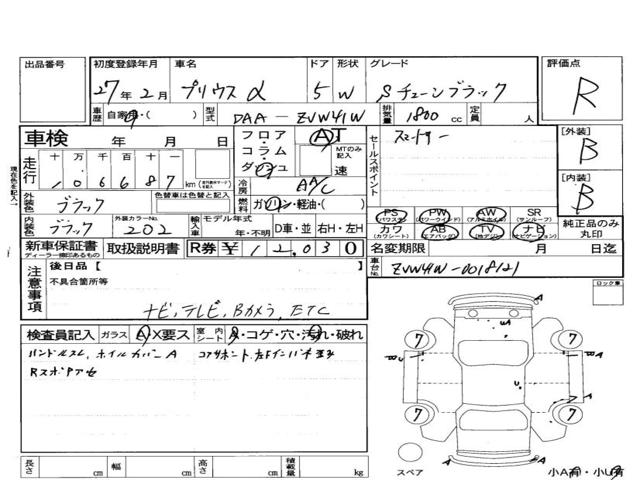 出品番号 初度登録年月 車名 ドア 形状 グレード 評価点
27年2月 プリウスα 5 W Sチューンブラック R
車歴 自家用・( ) 型式 DAA-ZVW41W 排気量 1800 cc 定員 人
車検 年 月 日 フロア・コラム・ダッシュ AT MTのみ記入 速
セールスポイント スマートキー
[外装] B
走行 十 万 千 百 十 一
1 0 6 6 8 7 km
冷房 AAC
[内装] B
外装色 ブラック 色替車は色替と記入 燃料 ガソリン・軽油・( )
PS (パワーステ) PW (パワーウインド) AW (アルミホイル) SR (サンルーフ) 純正品のみ丸印
内装色 ブラック 外装カラーNo. 202 輸入車 モデル年式 年・不明 D車・並 右H・左H
カワ (カワシート) AB (エアバッグ) TV (地デジ) ナビ (ナビゲーション)
新車保証書 ディーラー捺印あるもの 取扱説明書 R券 ¥12,030
名変期限 月 日迄
注意事項 後日品【 】
不具合箇所等
車台No. ZVW41W-0018121
ロック車
ナビ,テレビ,Bカメラ,ETC
検査員記入 ガラス A・X要ス 室内シート A・コゲ・穴・汚れ・破れ
ハンドルスレ,ホイルカバーA
Rスポア
コアサポート,左Fインパネ
A
UA
7 7
B U A
U
A
7 7
A
長さ cm 幅 cm 高さ cm 積載量 kg
スペア
小A有・小U有
現在色を記入